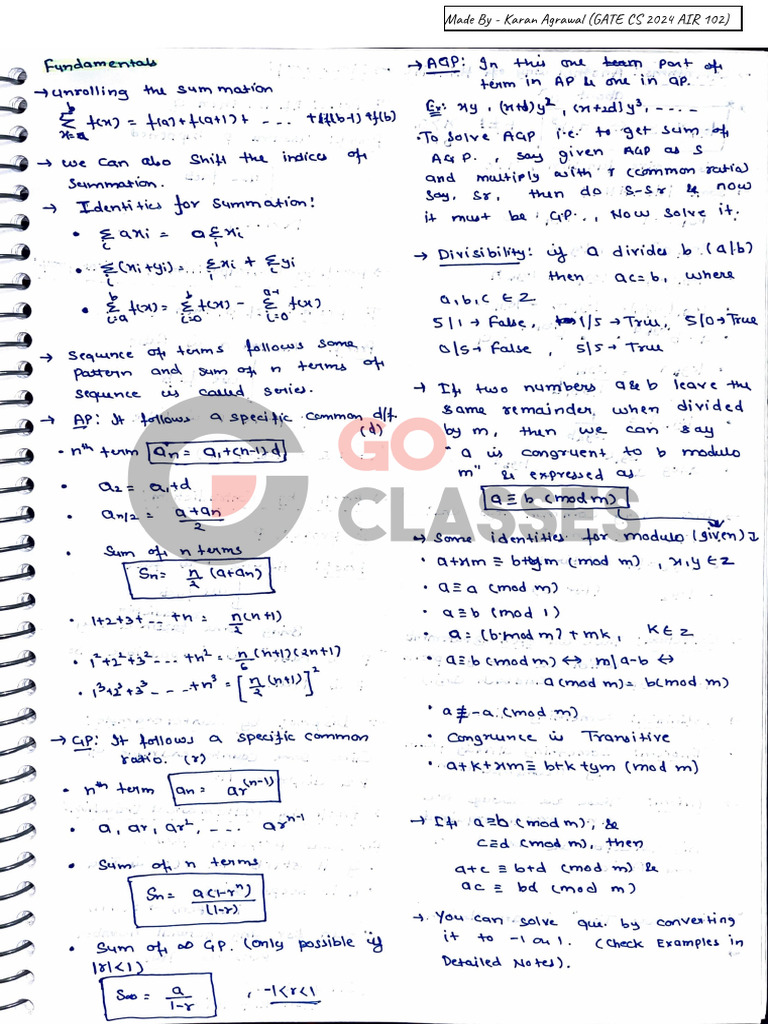 Made By - Karan Agrawal (GATE CS 2024 AIR 102)
Fundamentals
→ unrolling the summation
b∑x=a f(x) = f(a) + f(a+1) + ... + f(b-1) + f(b)
→ we can also shift the indices of
summation.
→ Identities for summation:
• ∑i axi = a∑i xi
• ∑i (xi+yi) = ∑i xi + ∑i yi
• b∑i=a f(x) = b∑i=0 f(x) - a-1∑i=0 f(x)
→ sequence of terms follows some
pattern and sum of n terms of
sequence is called series.
→ AP: It follows a specific common diff
(d)
• nth term an = a1+(n-1)d
• a2 = a1+d
• an/2 = (a+an)/2
• Sum of n terms
Sn = n/2 (a+an)
• 1+2+3+ ... +n = n/2 (n+1)
• 1²+2²+3² ... +n² = n/6 (n+1)(2n+1)
• 1³+2³+3³ - ... +n³ = [n/2 (n+1)]²
→ GP: It follows a specific common
ratio. (r)
• nth term an = ar^(n-1)
• a, ar, ar², ... ar^n-1
• Sum of n terms
Sn = a(1-r^n)/(1-r)
• Sum of ∞ GP. (only possible if
|r|<1)
S∞ = a/1-r , -1<r<1
→ AGP: In this one part of
term in AP & one in GP.
Ex: xy, (x+d)y², (x+2d)y³, ....
• To solve AGP i.e. to get sum of
AGP., say given AGP as S
and multiply with r (common ratio)
say, Sr, then do S-Sr & now
it must be GP., Now solve it.
→ Divisibility: if a divides b (a|b)
then ac=b, where
a,b,c ∈ Z
5|1 → False, 1|5 → True, 5|0 → True
0|5 → False, 5|5 → True
→ If two numbers a & b leave the
same remainder when divided
by m, then we can say
"a is congruent to b modulo
m" & expressed as
a ≡ b (mod m)
→ Some identities for modulo (given)
• a+xm ≡ b+ym (mod m), x,y ∈ Z
• a ≡ a (mod m)
• a ≡ b (mod 1)
• a = (b mod m) + mk, k ∈ Z
• a ≡ b (mod m) ↔ m|a-b ↔
a (mod m) = b (mod m)
• a ≢ -a (mod m)
• Congruence is Transitive
• a+k+xm ≡ b+k+ym (mod m)
→ If a≡b (mod m), &
c≡d (mod m), then
a+c ≡ b+d (mod m) &
ac ≡ bd (mod m)
→ You can solve que. by converting
it to -1 or 1. (Check Examples in
Detailed Notes).
GO
CLASSES